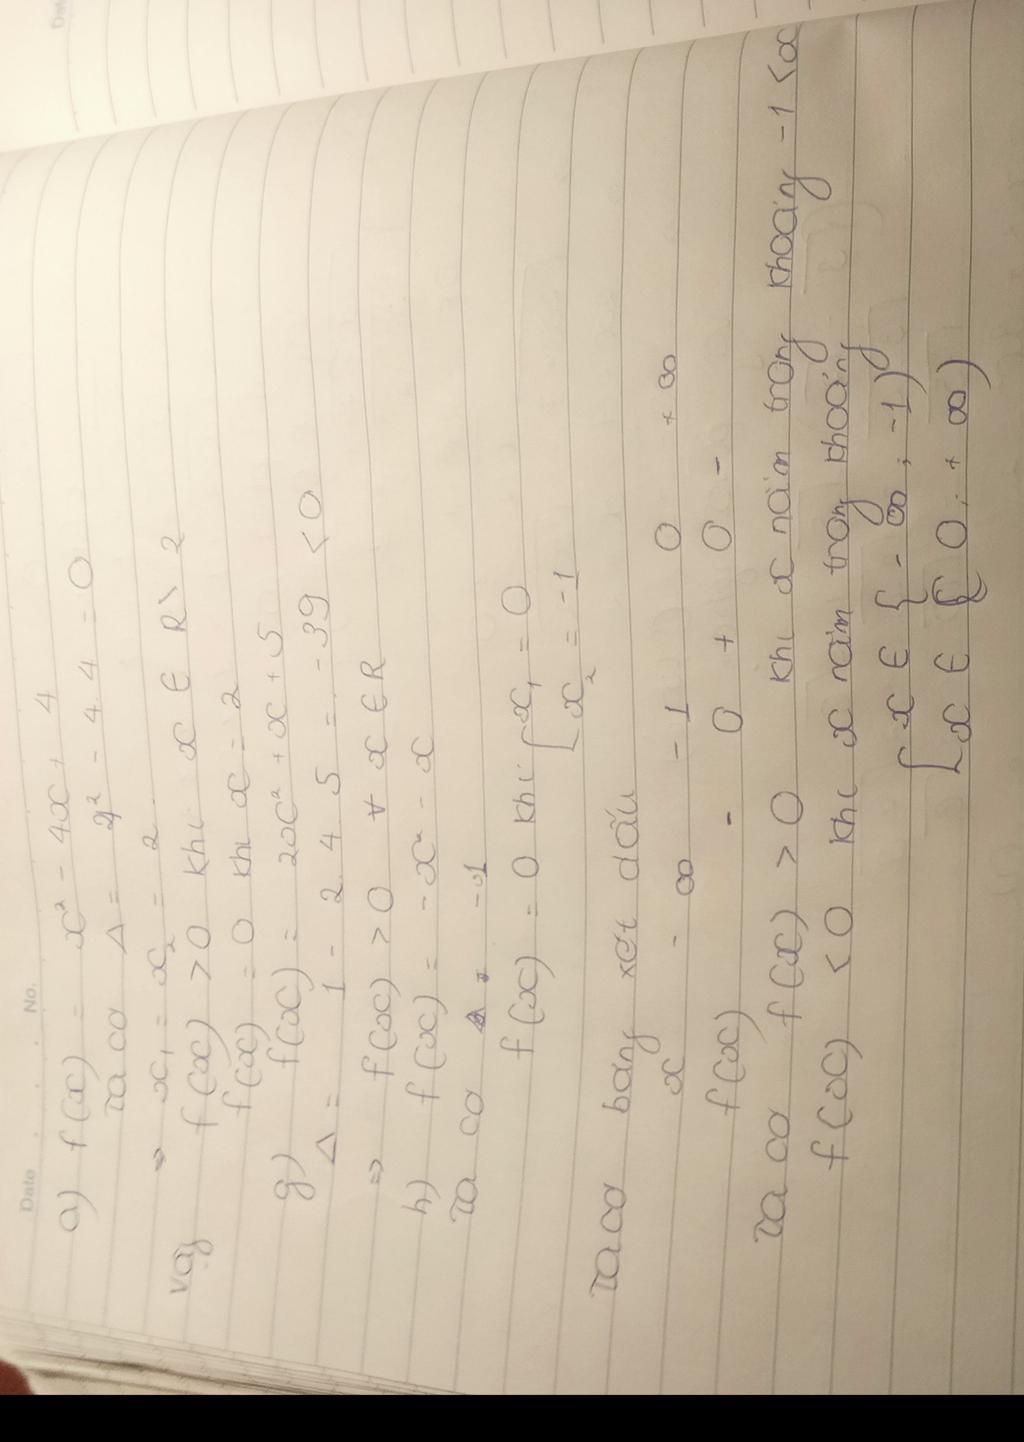 Date . . No.
a) f(x) = x² - 4x + 4
Ta co Δ = 4² - 4.4 = 0
⇒ x₁ = x₂ = 2
vậy f(x) > 0 khi x ∈ R \ 2
f(x) = 0 khi x = 2
g) f(x) = 2x² + x + 5
Δ = 1 - 2.4.5 = -39 < 0
⇒ f(x) > 0 ∀ x ∈ R
h) f(x) = -x² - x
Ta co
f(x) = 0 khi [x₁ = 0
[x₂ = -1
Ta co bảng xét dấu
x -∞ -1 0 +∞
f(x) - 0 + 0 -
Ta co f(x) > 0 khi x nằm trong khoảng -1 < x
f(x) < 0 khi x nằm trong khoảng
[x ∈ {-∞; -1)
[x ∈ (0; +∞)